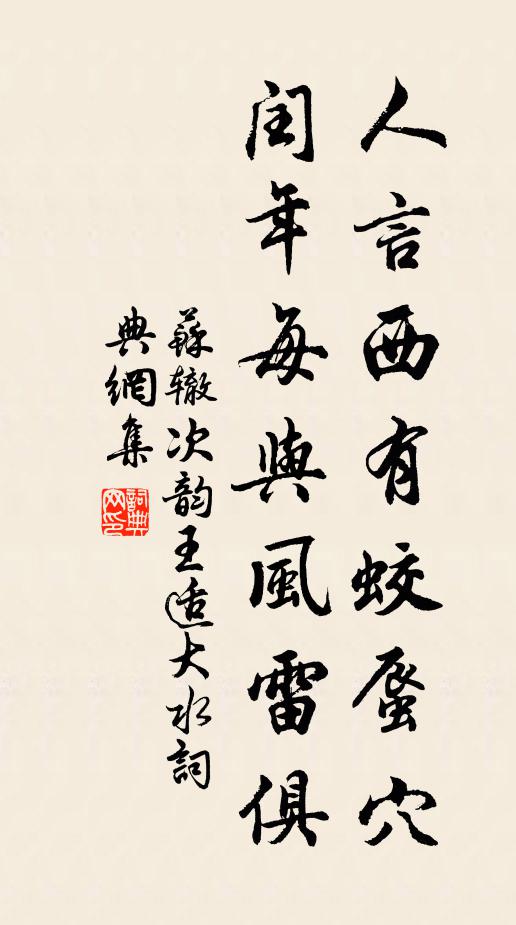 人言西有蛟蜃穴
閏年每與風雷俱
蘇辙次韵王适大水詞
典網集
詞典網印